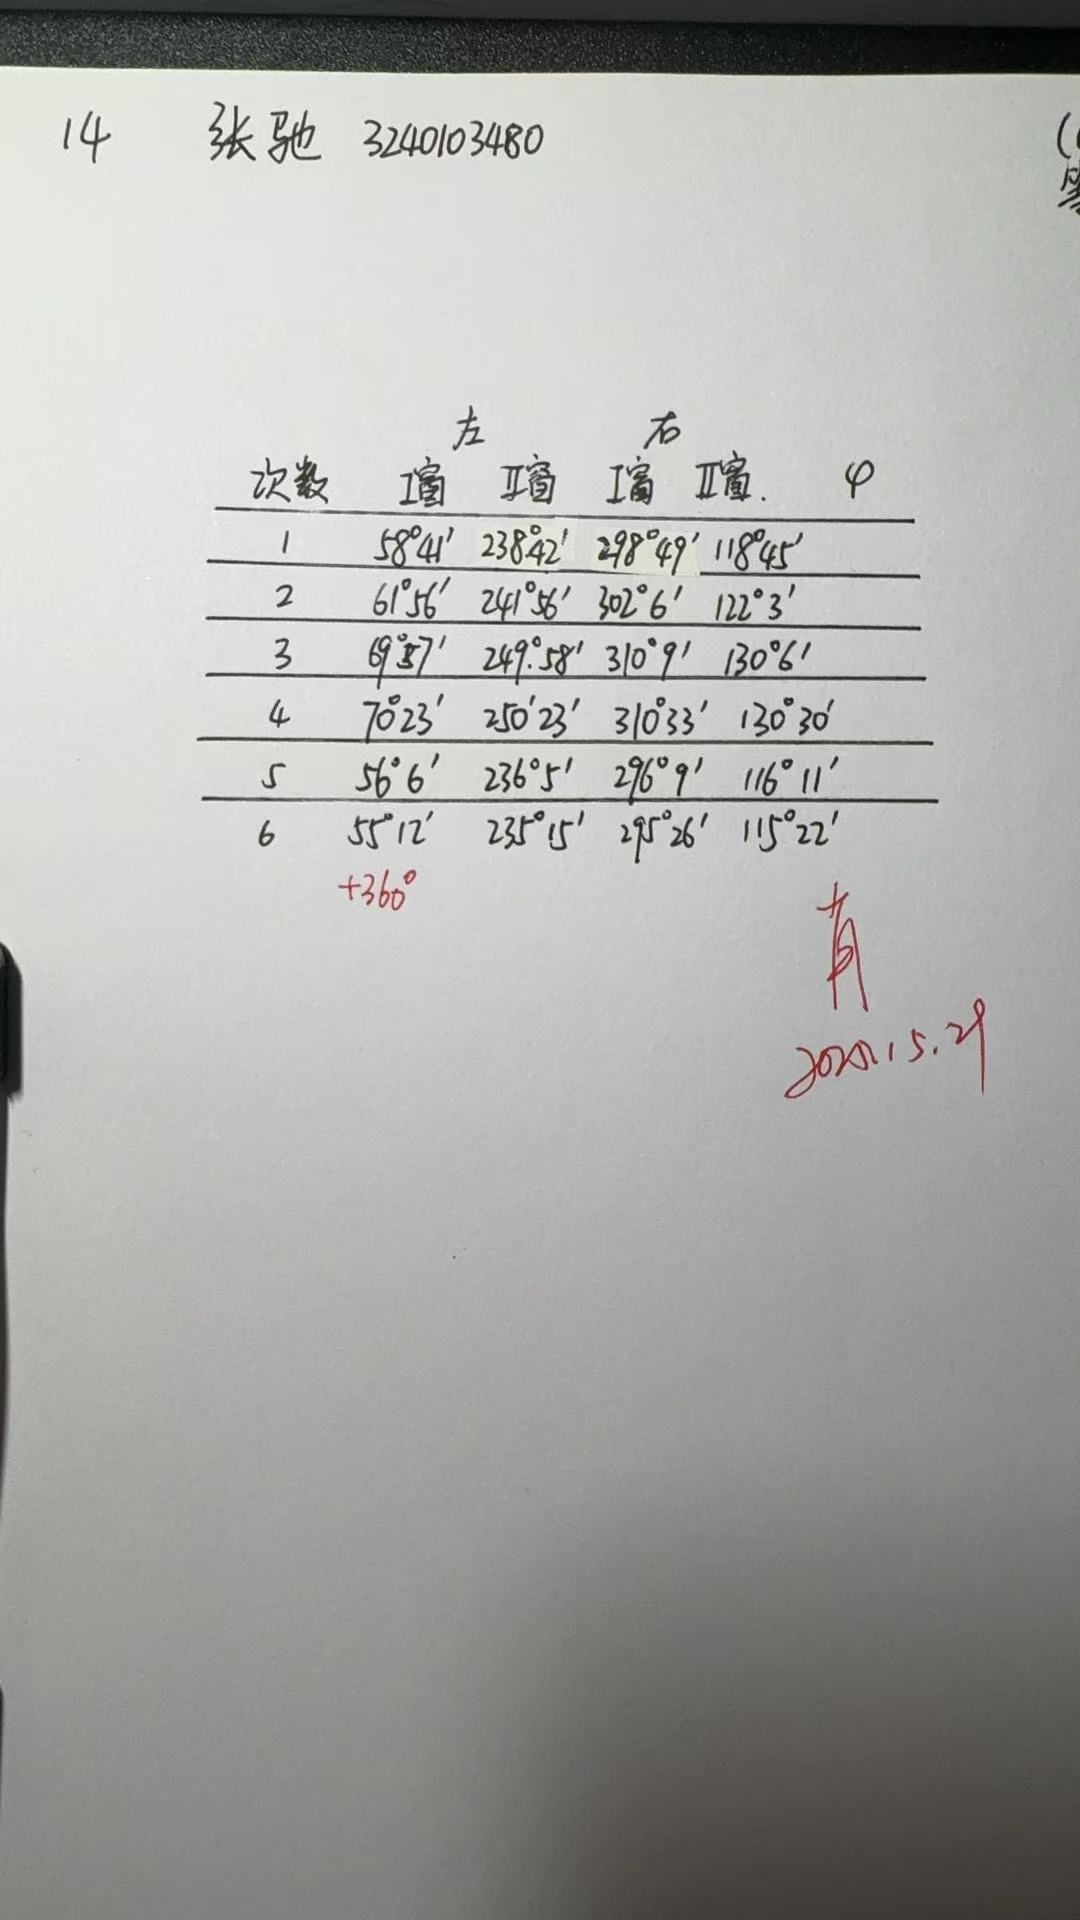 14 张驰 3240103480
左 右
次数 I窗 II窗 I窗 II窗. φ
1 58°41′ 238°42′ 298°49′ 118°45′
2 61°56′ 241°56′ 302°6′ 122°3′
3 69°57′ 249°.58′ 310°9′ 130°6′
4 70°23′ 250′23′ 310°33′ 130°30′
5 56°6′ 236°5′ 296°9′ 116°11′
6 55°12′ 235°15′ 295°26′ 115°22′
+360°